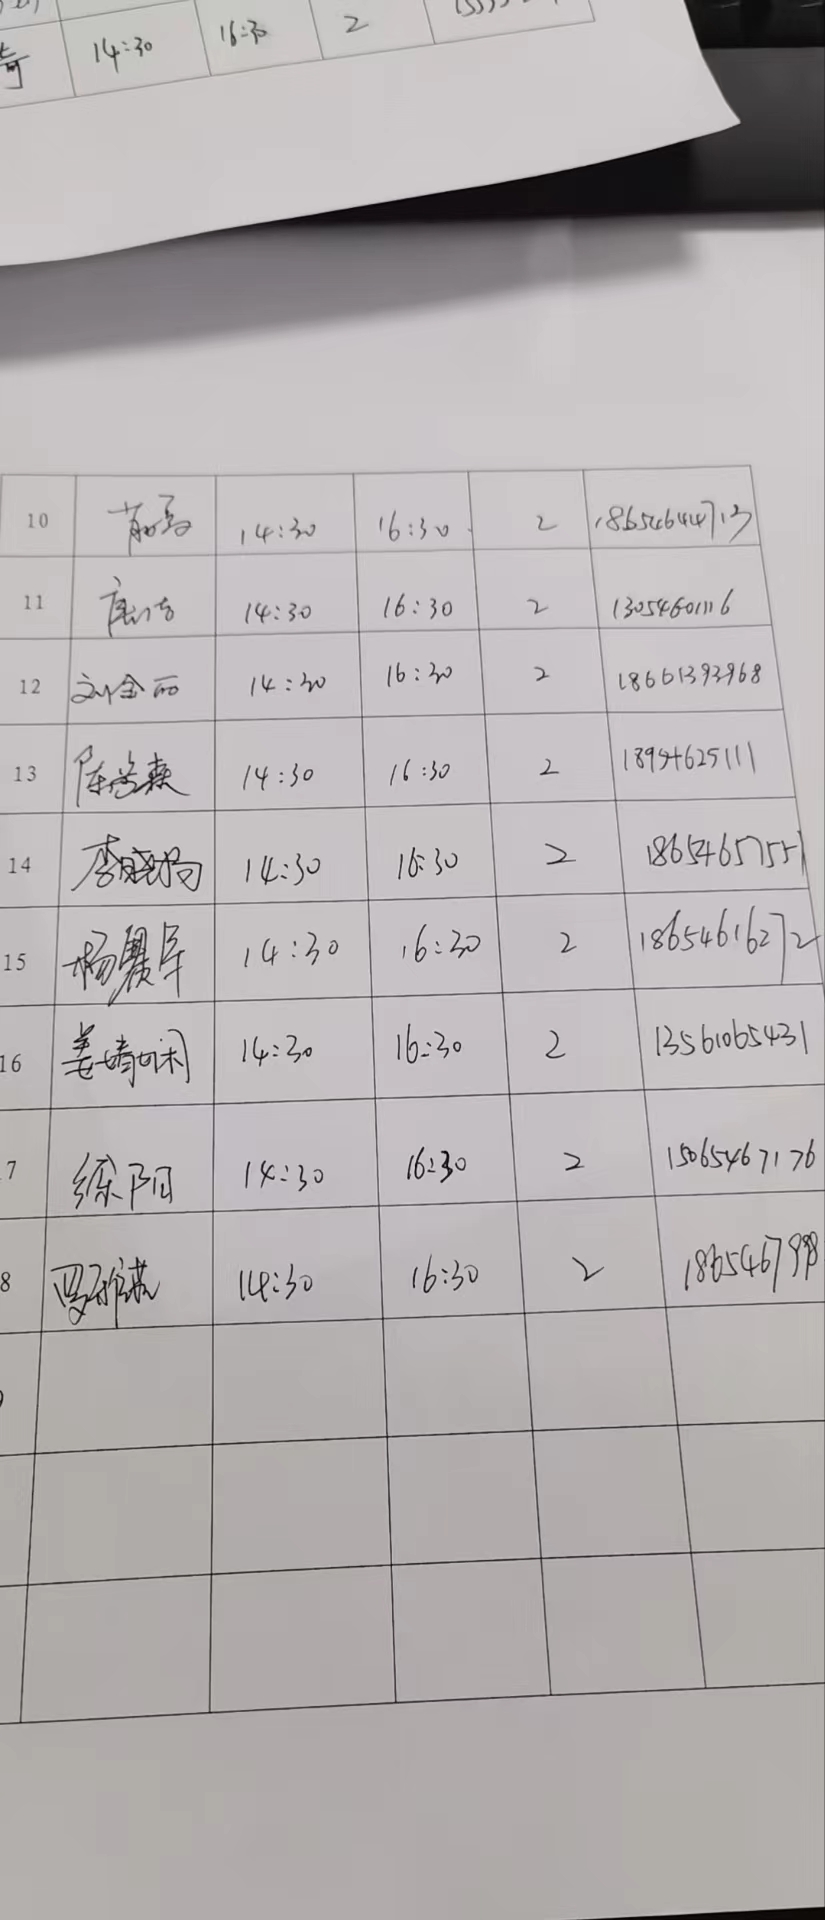 14:30 16:30 2
10 14:30 16:30 2 18654644713
11 14:30 16:30 2 13054601116
12 刘金丽 14:30 16:30 2 18661393968
13 14:30 16:30 2 18954625111
14 李晓杨 14:30 16:30 2 18654657551
15 杨晨军 14:30 16:30 2 18654616272
16 姜婧娴 14:30 16:30 2 13561065431
7 徐阳 14:30 16:30 2 15065467176
8 14:30 16:30 2